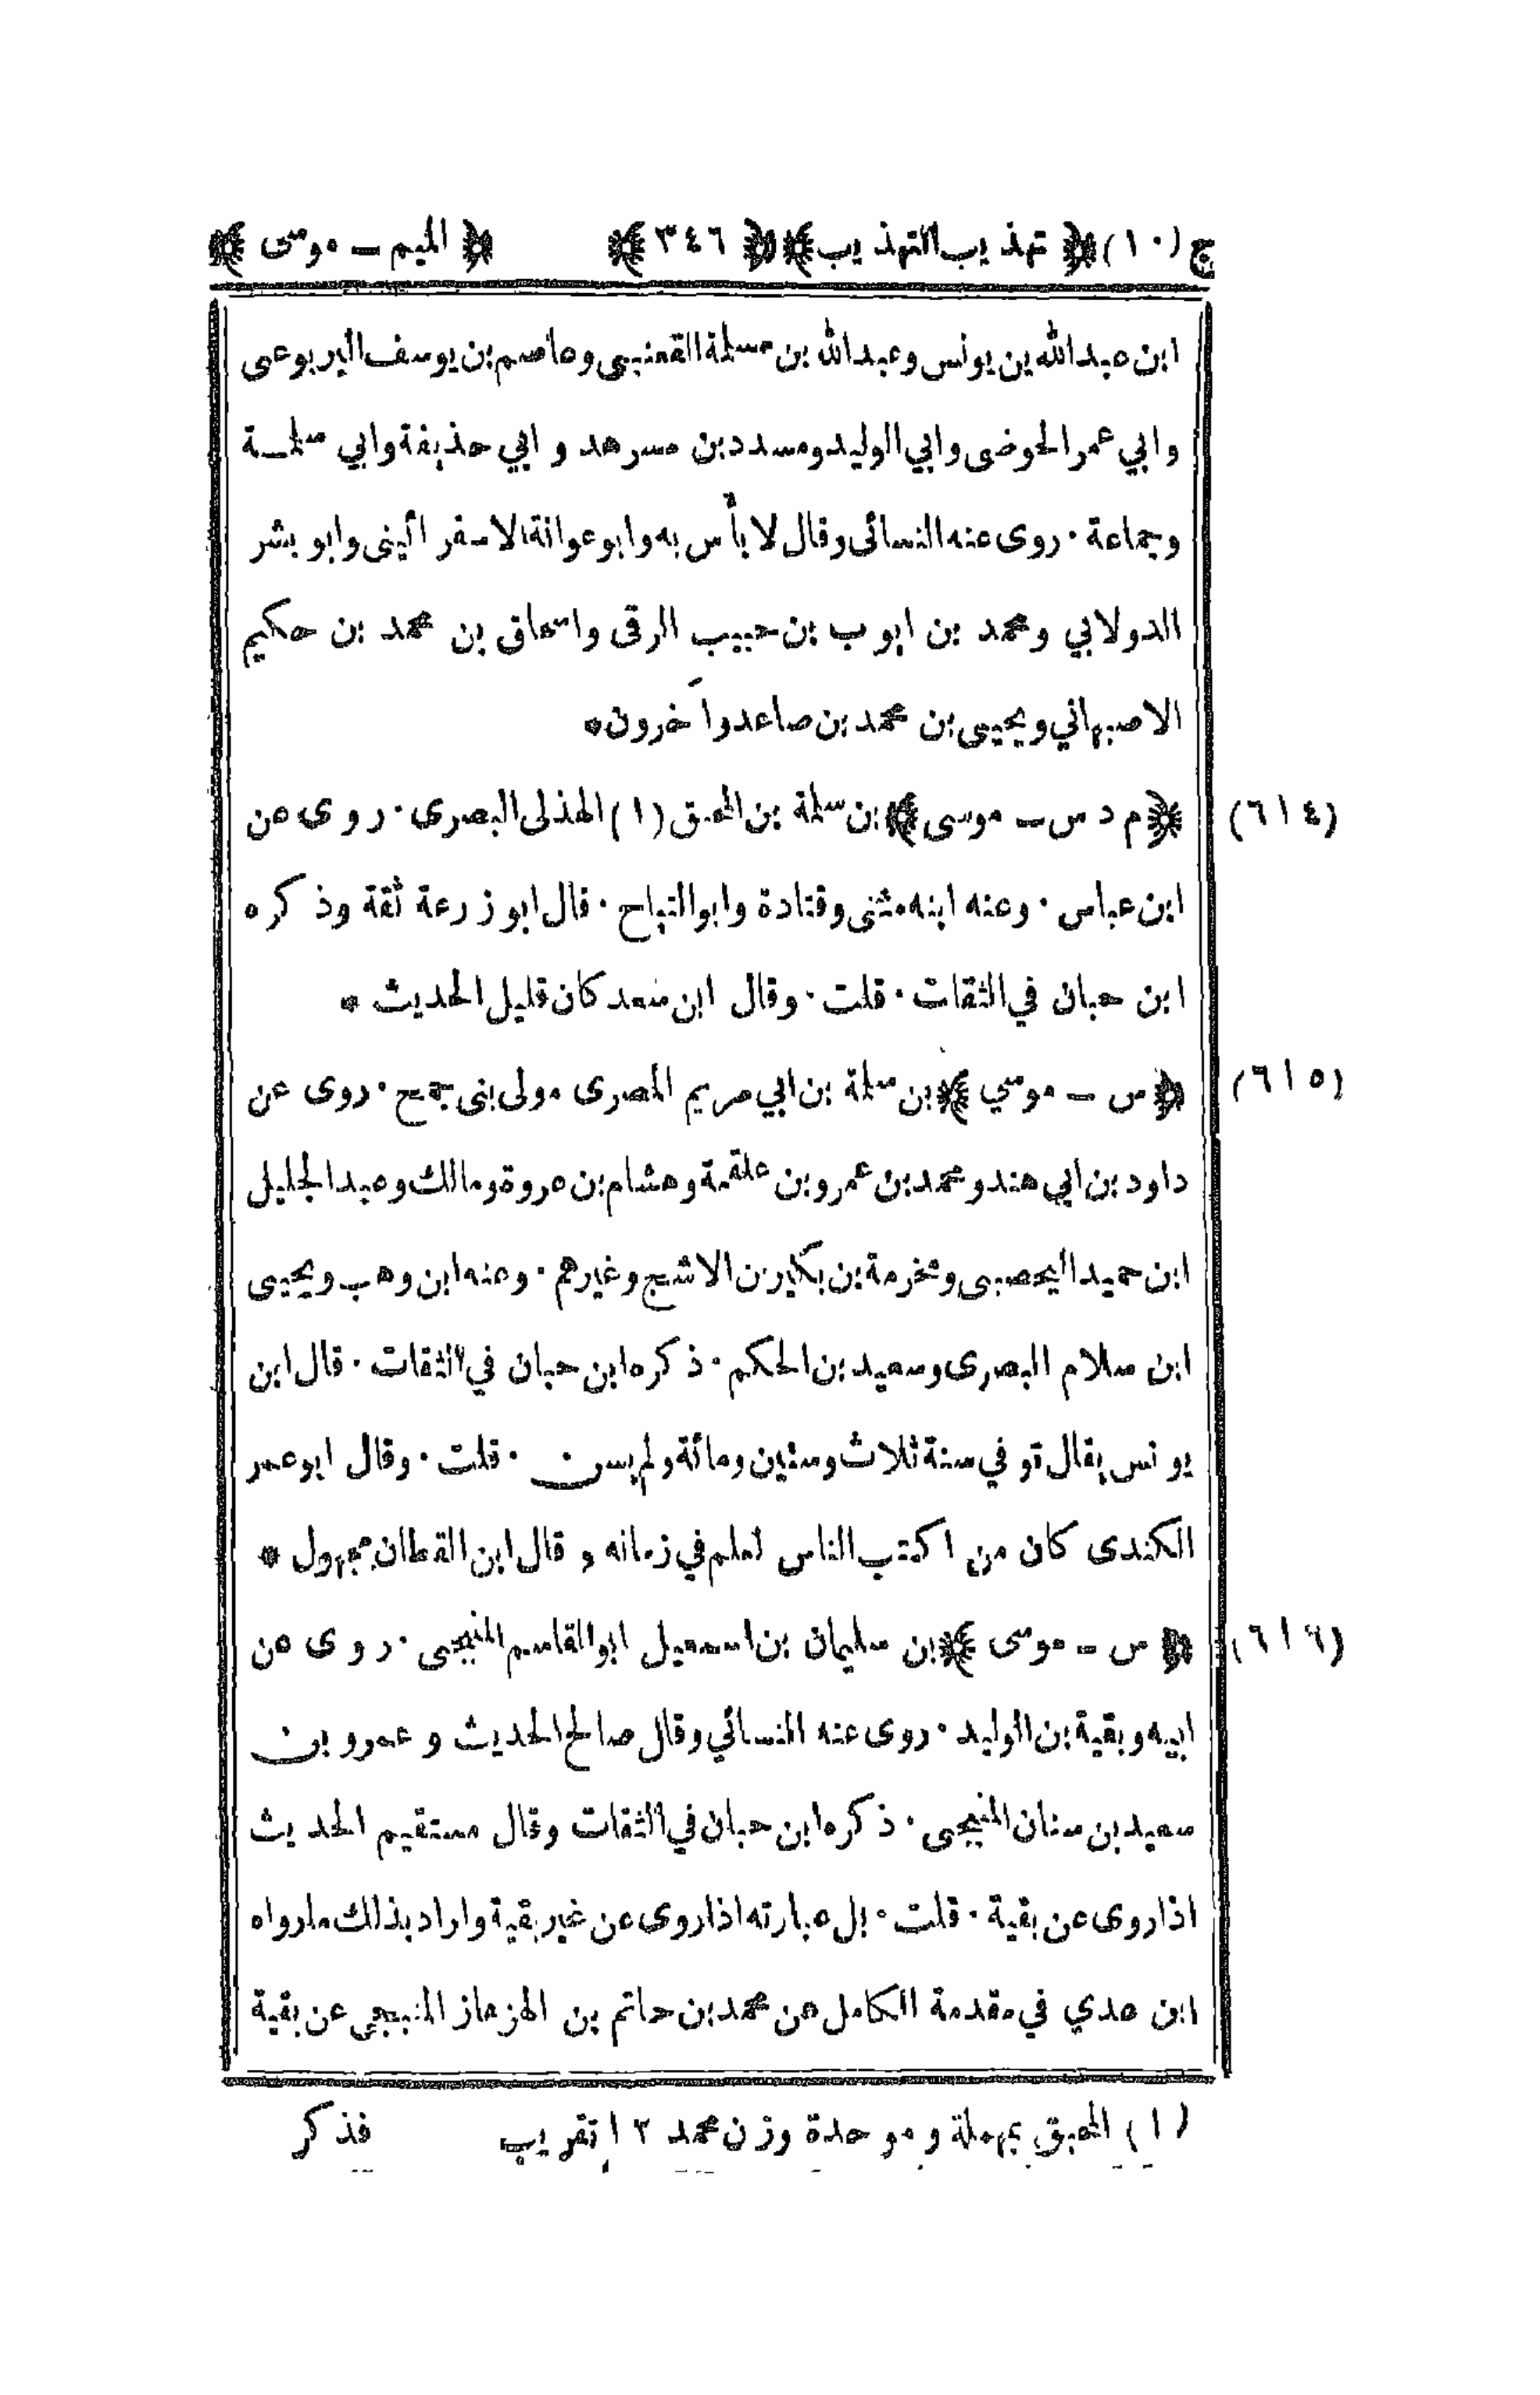 ج (١٠) ﴿ تهذيب التهذيب ﴾ ﴿ ٣٤٦ ﴾ ﴿ الميم ــ موسى ﴾
ابن عبدالله بن يونس وعبدالله بن مسلمة القعنبى وعاصم بن يوسف اليربوعى
وابي عمر الحوضى وابي الوليد ومسدد بن مسرهد و ابي حذيفة وابي سلمــة
وجماعة · روى عنه النسائى وقال لا بأس به وابوعوانة الاسفرائينى وابو بشر
الدولابي ومحمد بن ايوب بن حبيب الرقى واسحاق بن محمد بن حكيم
الاصبهاني ويحيى بن محمد بن صاعد وآخرون *
(٦١٤) ﴿ م د س ــ موسى ﴾ بن سلمة بن المحبق (١) الهذلى البصرى · روى عن
ابن عباس · وعنه ابنه مثنى وقتادة وابو التياح · قال ابو زرعة ثقة وذكره
ابن حبان في الثقات · قلت · وقال ابن سعد كان قليل الحديث *
(٦١٥) ﴿ س ــ موسي ﴾ بن سلمة بن ابي مريم المصرى مولى بنى جمح · روى عن
داود بن ابي هند ومحمد بن عمرو بن علقمة وهشام بن عروة ومالك وعبد الجليل
ابن حميد اليحصبى ومخرمة بن بكير بن الاشج وغيرهم · وعنه ابن وهب ويحيى
ابن سلام البصرى وسعيد بن الحكم · ذكره ابن حبان في الثقات · قال ابن
يونس يقال تو في سنة ثلاث وستين ومائة ولم يسن · قلت · وقال ابو عمر
الكندى كان من اكتب الناس لعلم في زمانه و قال ابن القطان مجهول *
(٦١٦) ﴿ س ــ موسى ﴾ بن سليمان بن اسمعيل ابو القاسم المنبجى · روى عن
ابيه وبقية بن الوليد · روى عنه النسائي وقال صالح الحديث و عمرو بن
سعيد بن سنان المنبجى · ذكره ابن حبان في الثقات وقال مستقيم الحديث
اذا روى عن بقية · قلت · بل عبارته اذا روى عن غير بقية واراد بذلك ما رواه
ابن عدي في مقدمة الكامل عن محمد بن حاتم بن الهزهاز المنبجي عن بقية
(١) المحبق بمهملة وموحدة وزن محمد ١٢ تقريب فذكر